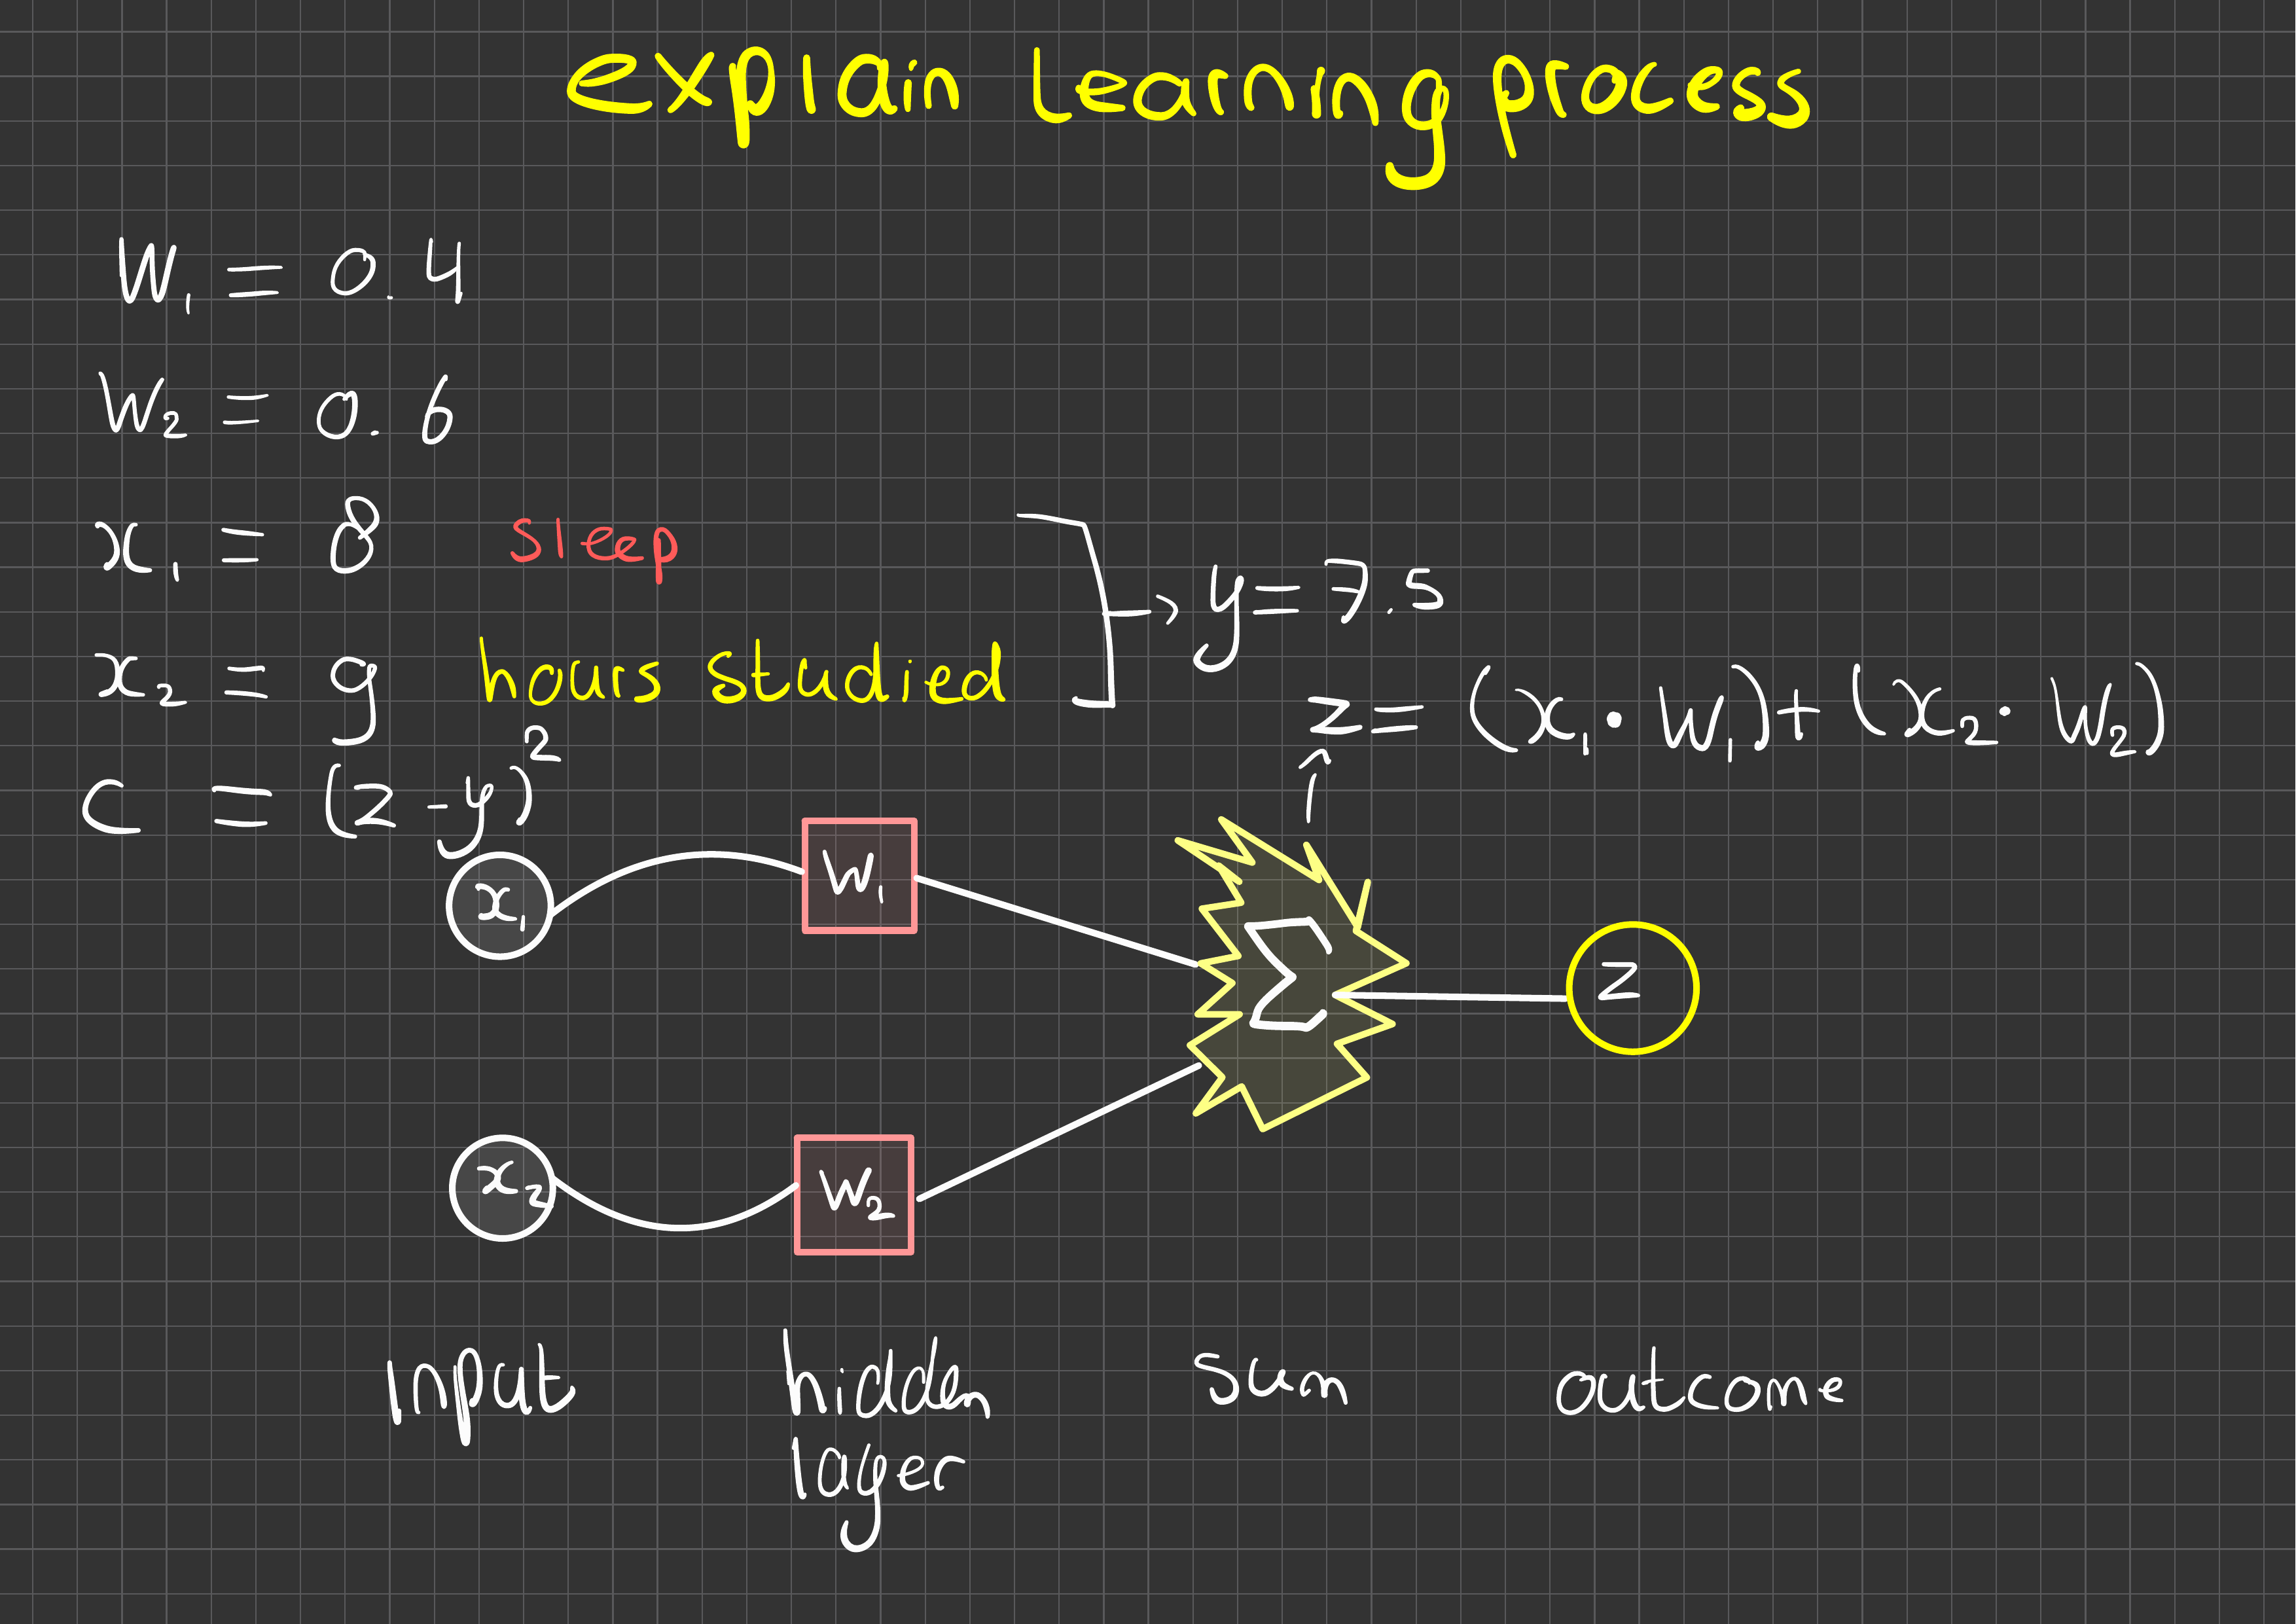 explain learning process
W₁ = 0.4
W₂ = 0.6
x₁ = 8 sleep
y = 7.5
x₂ = 9 hours studied
z = (x₁ · W₁) + (x₂ · W₂)
C = (z - y)²
x₁ W₁
Σ z
x₂ W₂
Input hidden layer Sum outcome